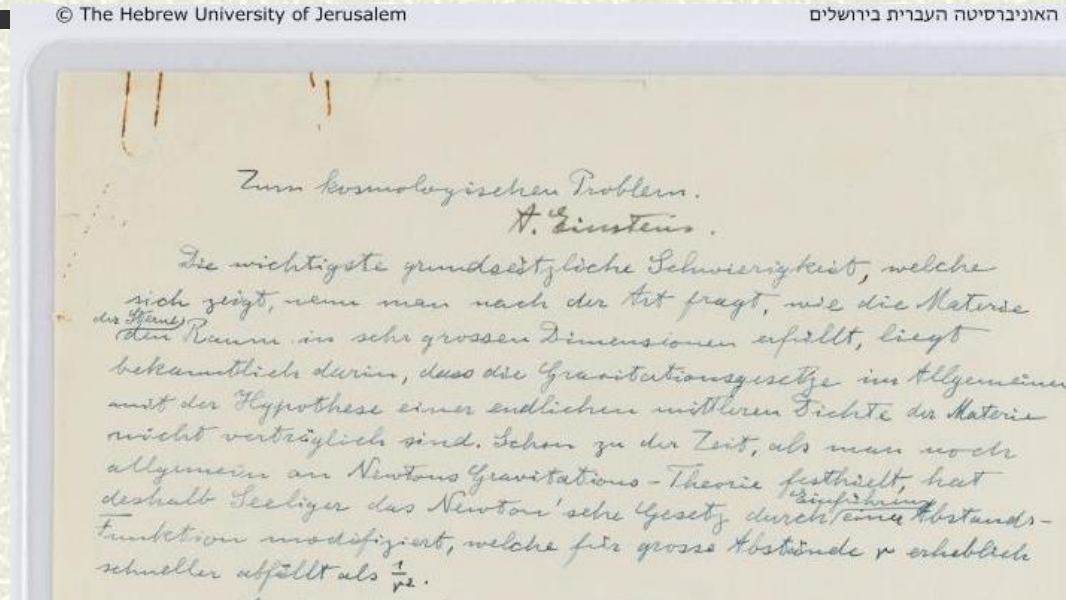 © The Hebrew University of Jerusalem
האוניברסיטה העברית בירושלים
Zum kosmologischen Problem.
A. Einstein.
Die wichtigste grundsätzliche Schwierigkeit, welche
sich zeigt, wenn man nach der Art fragt, wie die Materie
der Sterne)
den Raum in sehr grossen Dimensionen erfüllt, liegt
bekanntlich darin, dass die Gravitationsgesetze im Allgemeinen
mit der Hypothese einer endlichen mittleren Dichte der Materie
nicht verträglich sind. Schon zu der Zeit, als man noch
allgemein an Newtons Gravitations-Theorie festhielt, hat
Einführung
deshalb Seeliger das Newton'sche Gesetz durch einer Abstands-
Funktion modifiziert, welche für grosse Abstände r erheblich
schneller abfällt als 1/r².